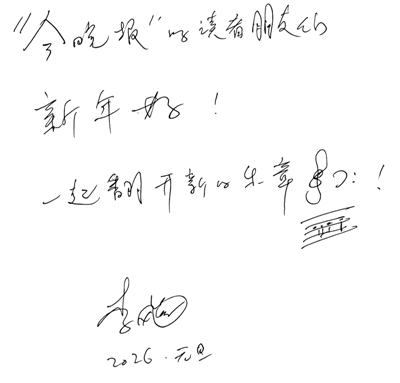 “今晚报”的读者朋友们
新年好！
一起翻开新的乐章！
李
2026.元旦